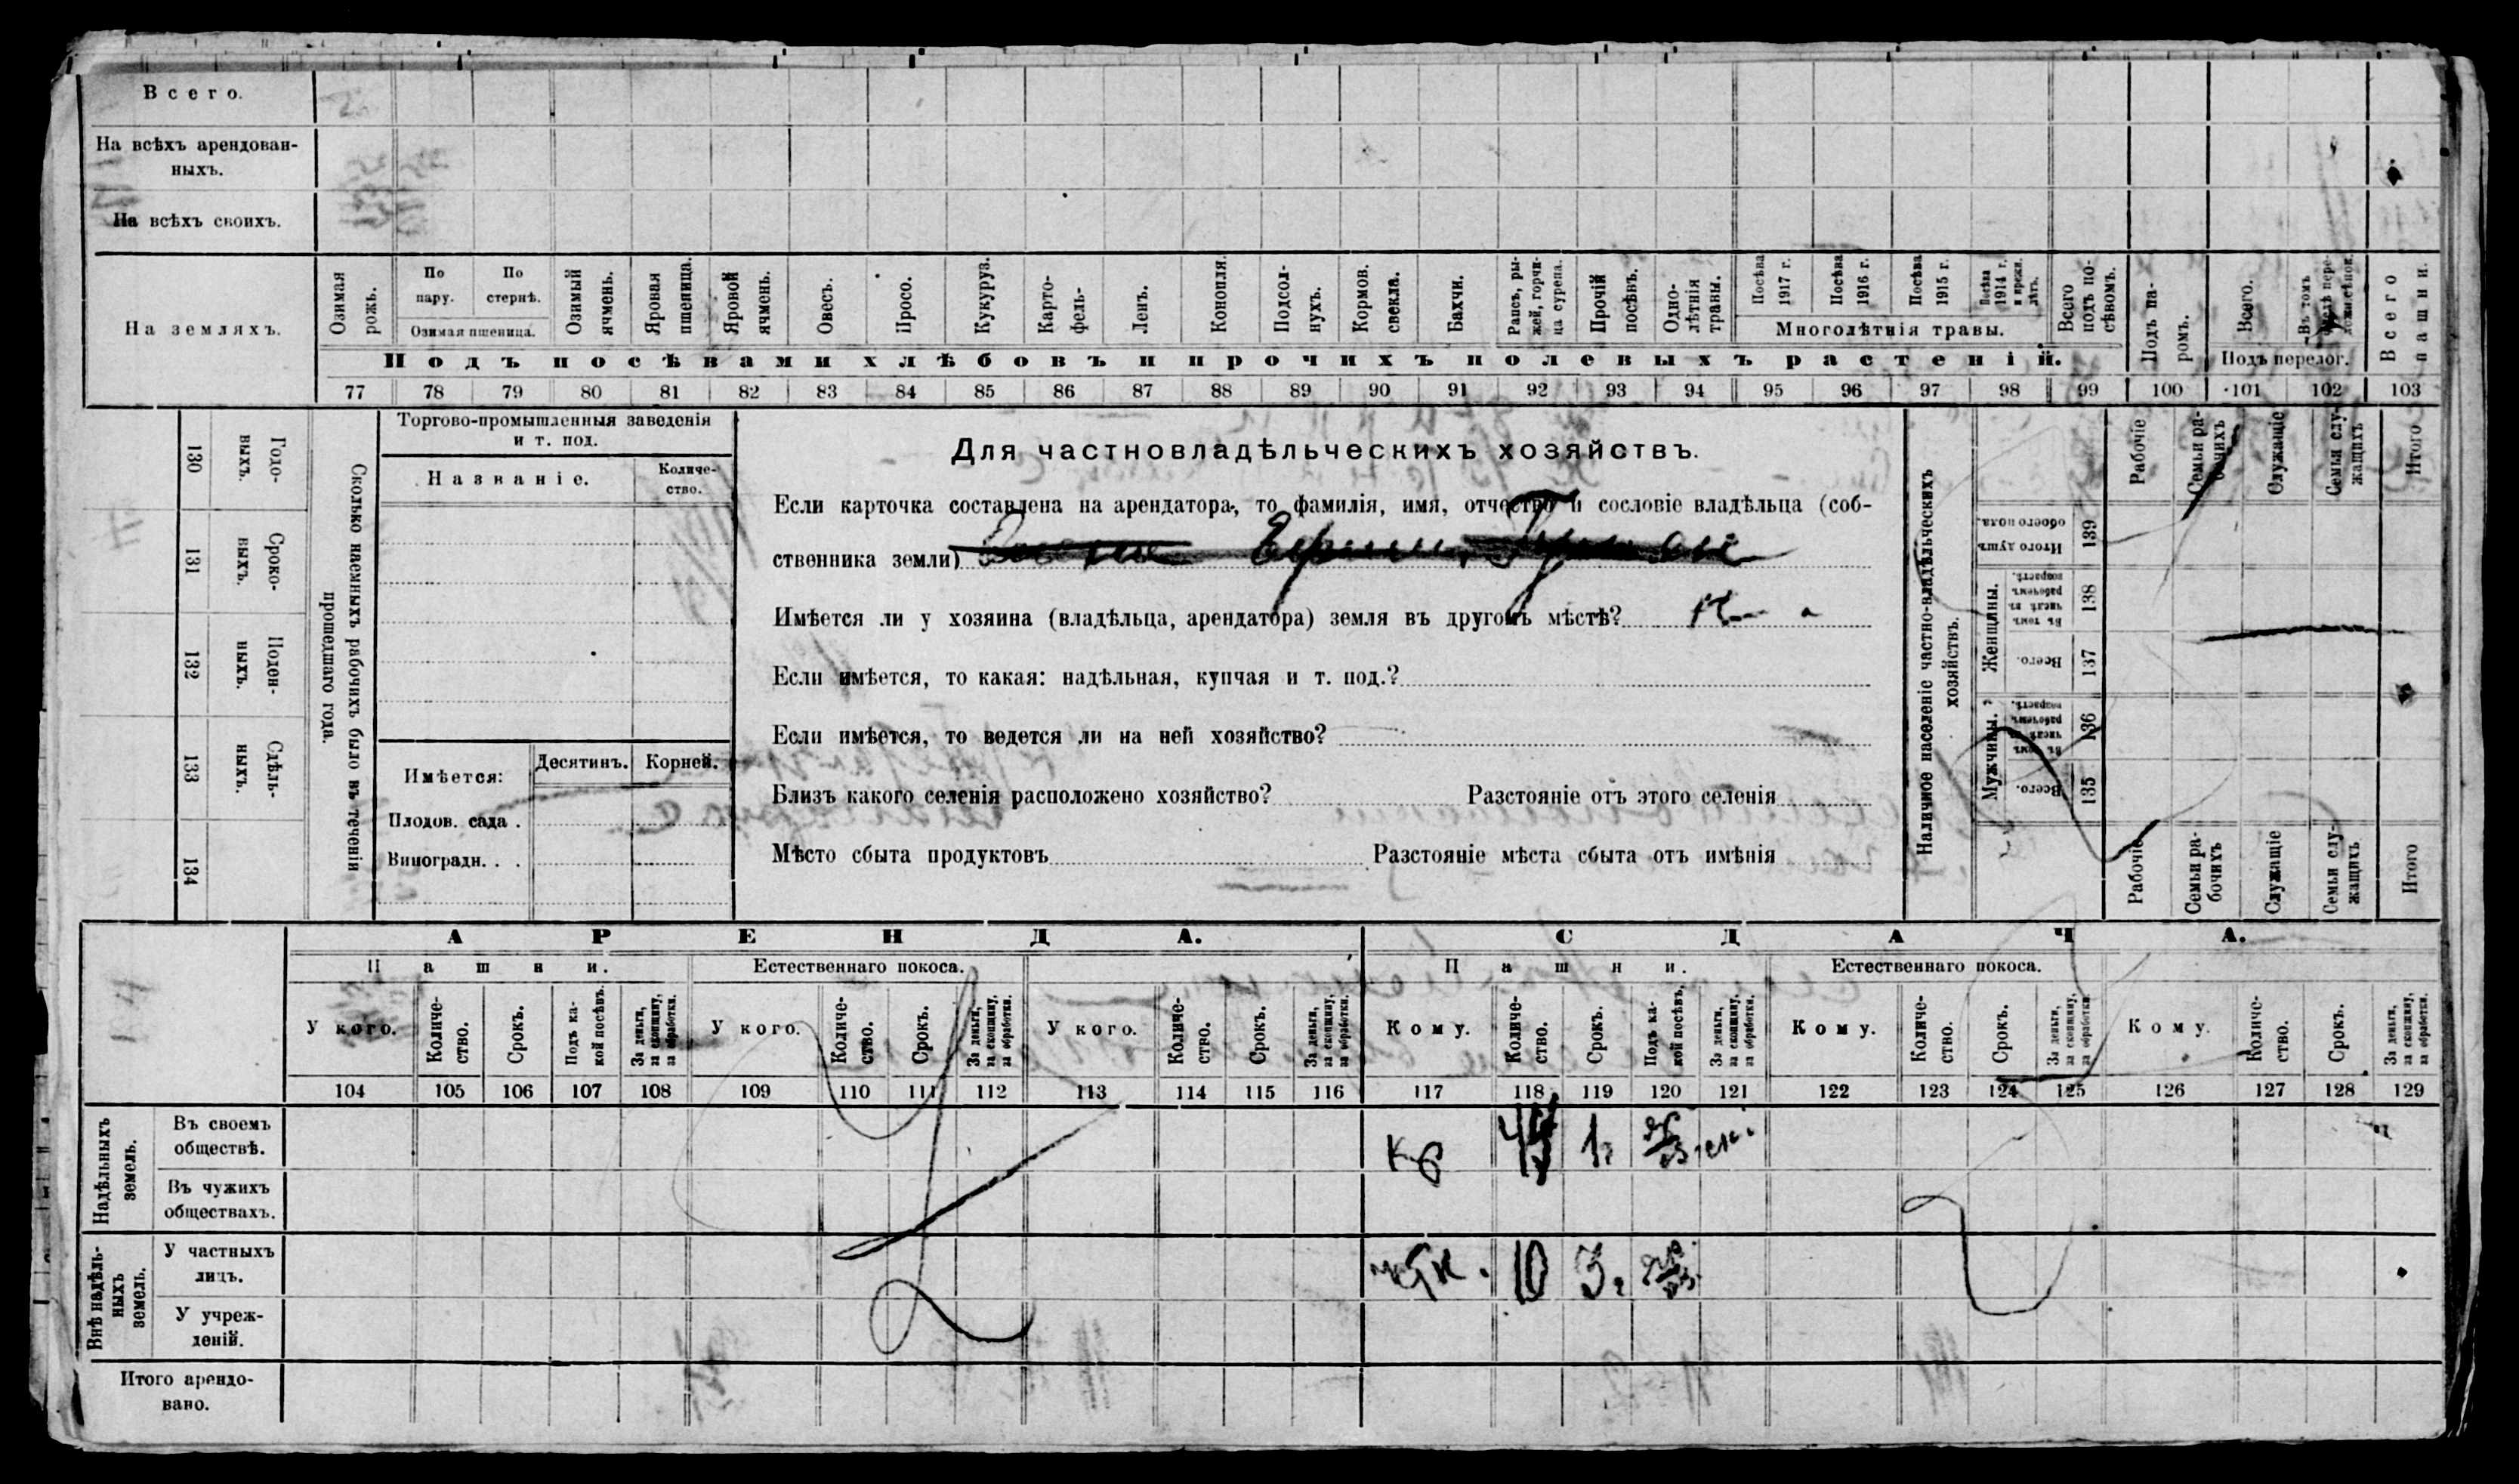 Всего.
На всѣхъ арендован-
ныхъ.
На всѣхъ своихъ.
На земляхъ.
Озимая рожь.
По пару.
По стернѣ.
Озимая пшеница.
Озимый ячмень.
Яровая пшеница.
Яровой ячмень.
Овесъ.
Просо.
Кукуруз.
Карто-
фель-
Ленъ.
Конопля.
Подсол-
нухъ.
Кормов. свекла.
Бахчи.
Рапсъ, ры-
жей, горчи-
ца сурепа.
Прочій посѣвъ.
Одно-
лѣтнія
травы.
Посѣва 1917 г.
Посѣва 1916 г.
Посѣва 1915 г.
Посѣва 1914 г. и прежн. лѣтъ.
Многолѣтнія травы.
Всего подъ по-
сѣвомъ.
Подъ па-
ромъ.
Всего.
Въ томъ числѣ
Подъ перелог.
Всего пашни.
Подъ посѣвами хлѣбовъ и прочихъ полевыхъ растеній.
77 78 79 80 81 82 83 84 85 86 87 88 89 90 91 92 93 94 95 96 97 98 99 100 101 102 103
130 Годо-
выхъ.
131 Сроко-
выхъ.
132 Поден-
ныхъ.
133 Сдѣль-
ныхъ.
134
Сколько наемныхъ рабочихъ было въ теченіи
прошедшаго года.
Торгово-промышленныя заведенія
и т. под.
Названіе.
Количе-
ство.
Имѣется:
Десятинъ.
Корней.
Плодов. сада .
Виноградн. . .
Для частновладѣльческихъ хозяйствъ.
Если карточка составлена на арендатора, то фамилія, имя, отчество и сословіе владѣльца (соб-
ственника земли)
Имѣется ли у хозяина (владѣльца, арендатора) земля въ другомъ мѣстѣ?
Если имѣется, то какая: надѣльная, купчая и т. под.?
Если имѣется, то ведется ли на ней хозяйство?
Близъ какого селенія расположено хозяйство? Разстояніе отъ этого селенія
Мѣсто сбыта продуктовъ Разстояніе мѣста сбыта отъ имѣнія
Наличное населеніе частно-владѣльческихъ
хозяйствъ.
Рабочіе
Семьи ра-
бочихъ
Служащіе
Семьи слу-
жащихъ
Итого
Итого душъ обоего пола. 139
Женщины.
Въ томъ числѣ въ рабочемъ возрастѣ. 138
Всего. 137
Мужчины.
Въ томъ числѣ въ рабочемъ возрастѣ. 136
Всего. 135
Рабочіе
Семьи ра-
бочихъ
Служащіе
Семьи слу-
жащихъ
Итого
АРЕНДА. СДАЧА.
Пашни. Естественнаго покоса. Пашни. Естественнаго покоса.
У кого.
Количе-
ство.
Срокъ.
Подъ ка-
кой посѣвъ.
За деньги,
за скопщину,
за обработки.
У кого.
Количе-
ство.
Срокъ.
За деньги,
за скопщину,
за обработки.
У кого.
Количе-
ство.
Срокъ.
За деньги,
за скопщину,
за обработки.
Кому.
Количе-
ство.
Срокъ.
Подъ ка-
кой посѣвъ.
За деньги,
за скопщину,
за обработки.
Кому.
Количе-
ство.
Срокъ.
За деньги,
за скопщину,
за обработки.
Кому.
Количе-
ство.
Срокъ.
За деньги,
за скопщину,
за обработки.
104 105 106 107 108 109 110 111 112 113 114 115 116 117 118 119 120 121 122 123 124 125 126 127 128 129
Надѣльныхъ
земель.
Въ своемъ
обществѣ.
Въ чужихъ
обществахъ.
10 3г
Внѣ надѣль-
ныхъ
земель.
У частныхъ
лицъ.
У учреж-
деній.
Итого арендо-
вано.